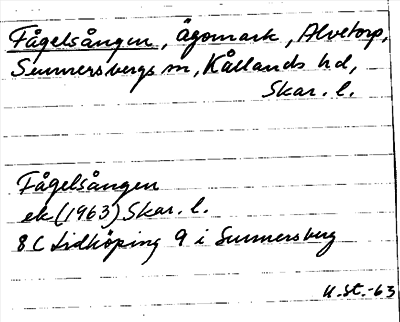 Fågelsången, Ägomark, Alvetorp,
Sunnersbergs sn, Kållands hd,
Skar. l.
Fågelsången
ek (1963) Skar. l.
8C Lidköping 9 i Sunnersberg
U.St.-63